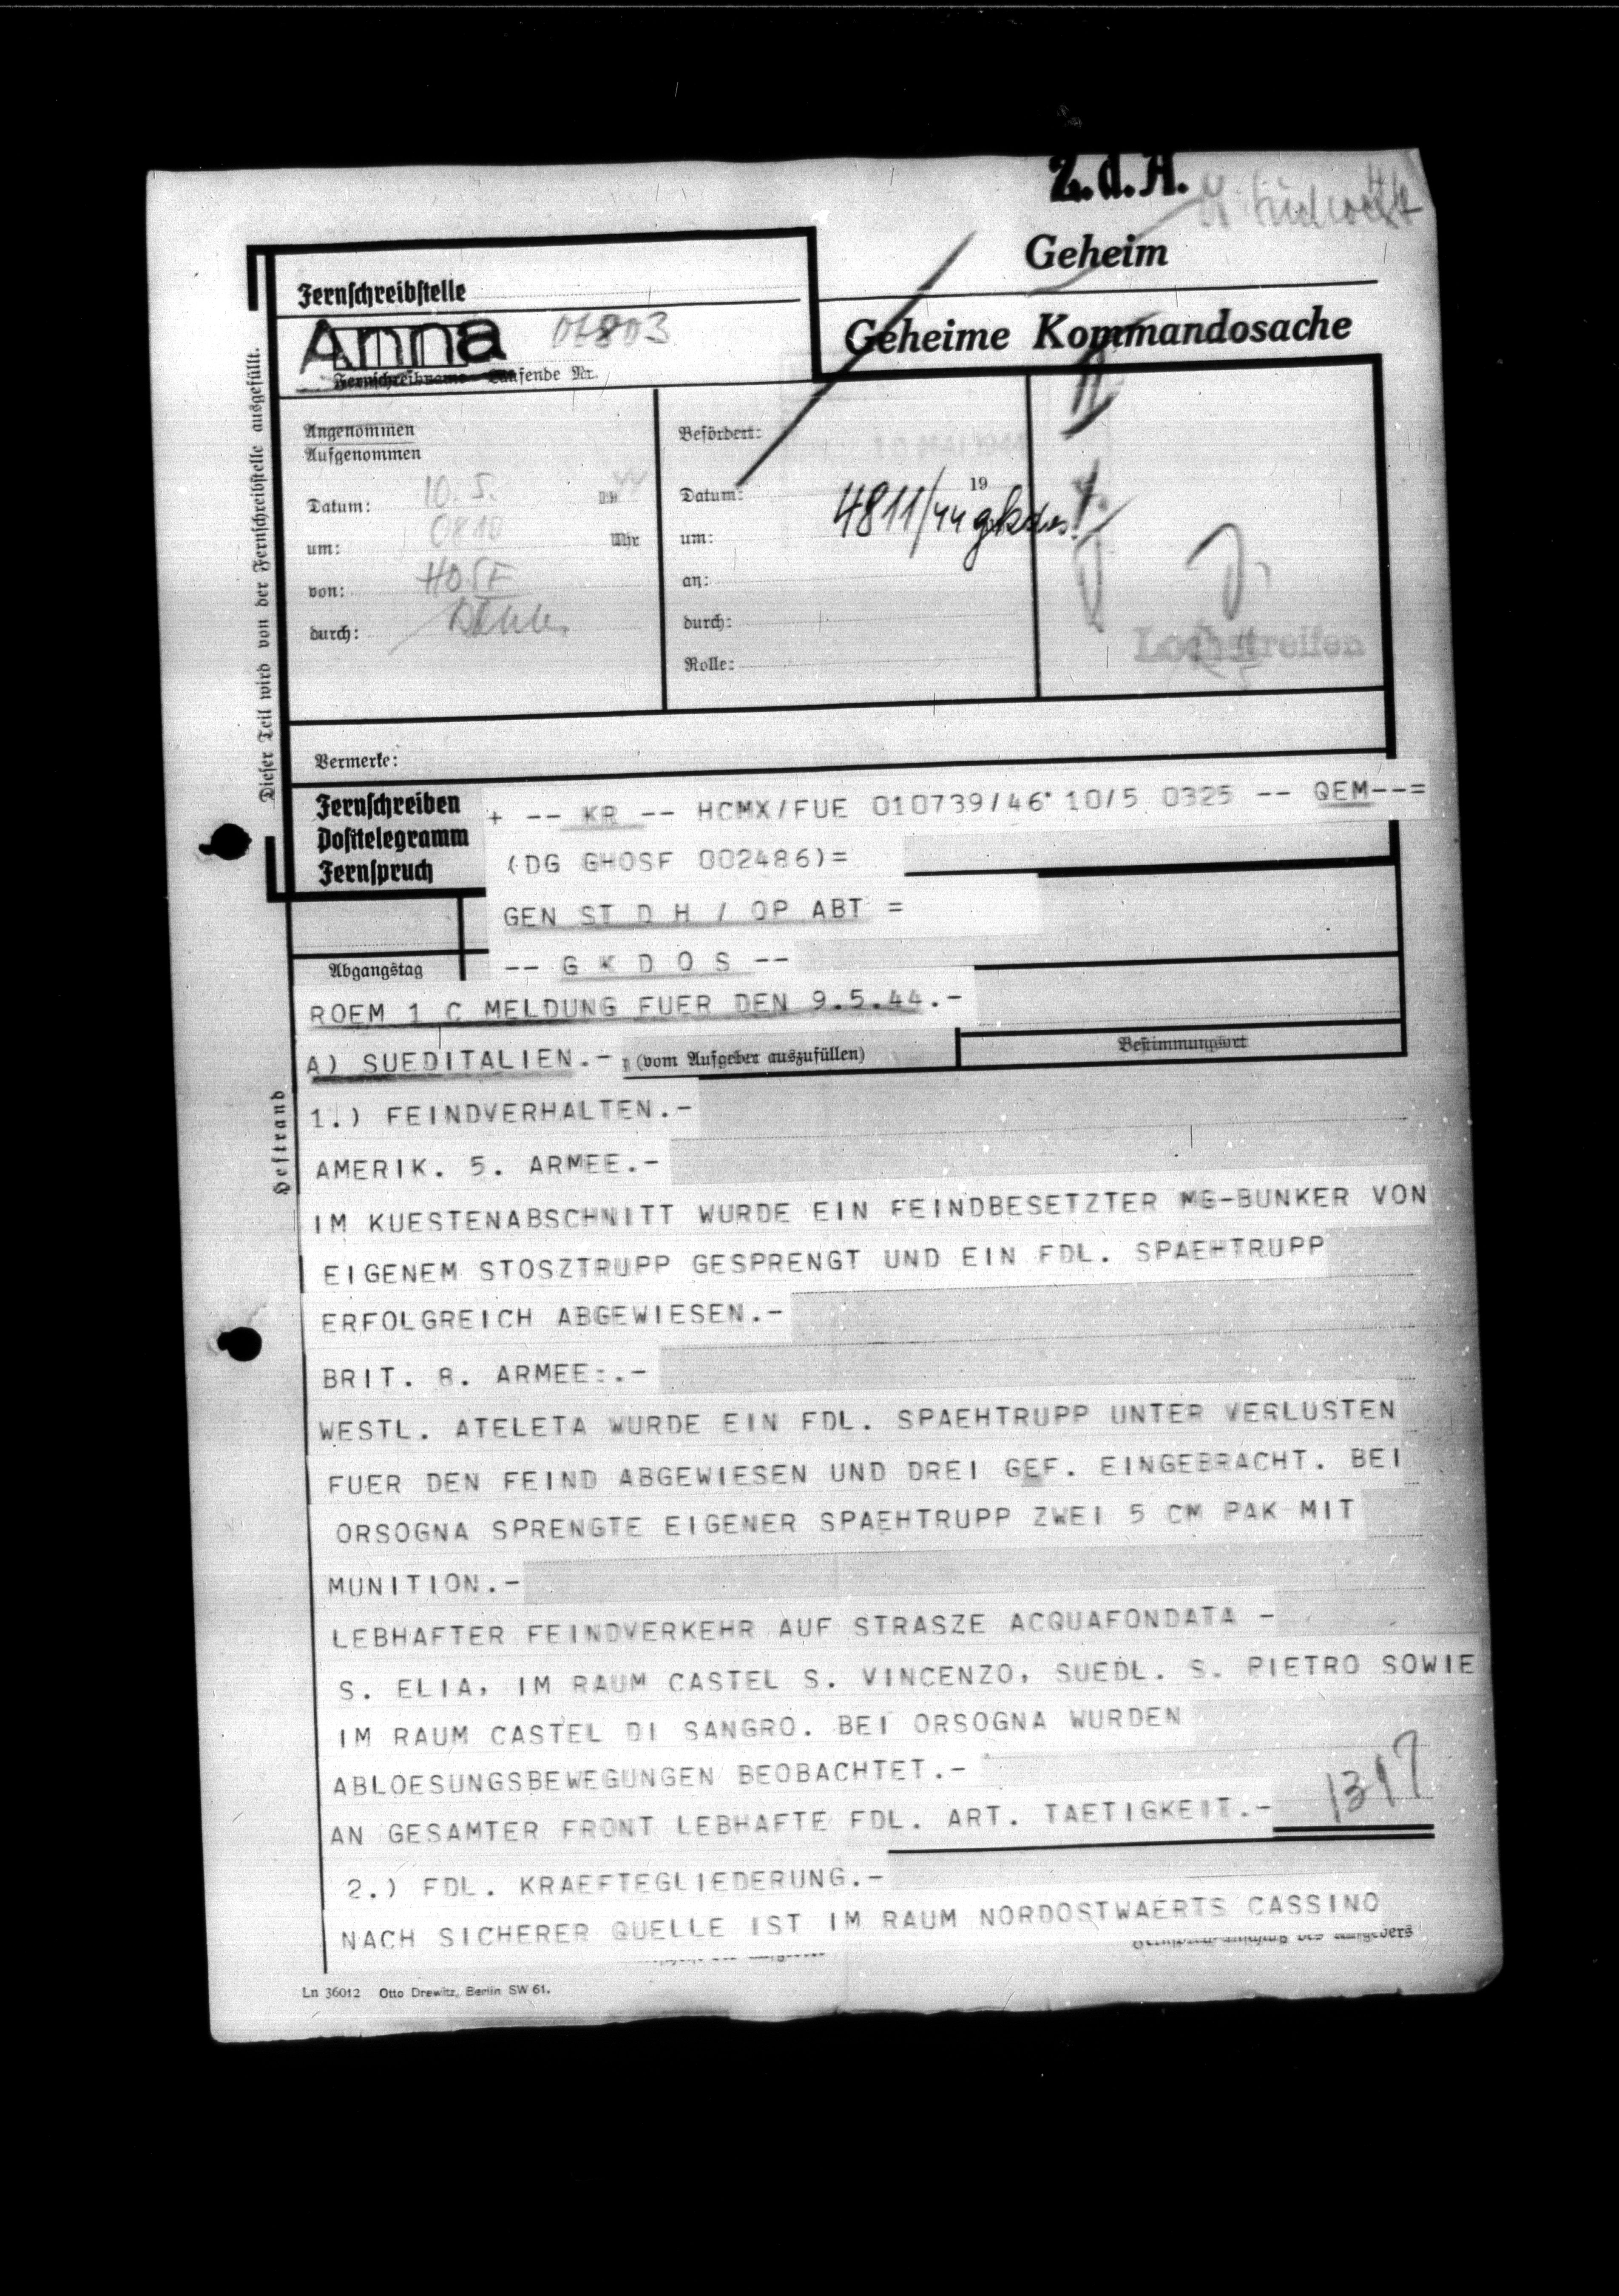 Z.d.A.
Geheim
Fernschreibstelle
Anna 01803
Geheime Kommandosache
Fernschreibname Laufende Nr.
Dieser Teil wird von der Fernschreibstelle ausgefüllt.
Angenommen
Aufgenommen
Datum: 10. 5. 19 44
um: 0810 Uhr
von: HOSF
durch:
Befördert:
10 MAI 1944
Datum: 19
4811/44 gkdos.
um:
an:
durch:
Rolle:
Lochstreifen
Vermerke:
Fernschreiben
Posttelegramm
Fernspruch
+ -- KR -- HCMX/FUE 010739/46 10/5 0325 -- QEM--=
(DG GHOSF 002486)=
GEN ST D H / OP ABT =
-- G K D O S --
Abgangstag
ROEM 1 C MELDUNG FUER DEN 9.5.44.-
A) SUEDITALIEN.- (vom Aufgeber auszufüllen)
Bestimmungsort
Heftrand
1.) FEINDVERHALTEN.-
AMERIK. 5. ARMEE.-
IM KUESTENABSCHNITT WURDE EIN FEINDBESETZTER MG-BUNKER VON
EIGENEM STOSZTRUPP GESPRENGT UND EIN FDL. SPAEHTRUPP
ERFOLGREICH ABGEWIESEN.-
BRIT. 8. ARMEE:.-
WESTL. ATELETA WURDE EIN FDL. SPAEHTRUPP UNTER VERLUSTEN
FUER DEN FEIND ABGEWIESEN UND DREI GEF. EINGEBRACHT. BEI
ORSOGNA SPRENGTE EIGENER SPAEHTRUPP ZWEI 5 CM PAK MIT
MUNITION.-
LEBHAFTER FEINDVERKEHR AUF STRASZE ACQUAFONDATA -
S. ELIA, IM RAUM CASTEL S. VINCENZO, SUEDL. S. PIETRO SOWIE
IM RAUM CASTEL DI SANGRO. BEI ORSOGNA WURDEN
ABLOESUNGSBEWEGUNGEN BEOBACHTET.-
AN GESAMTER FRONT LEBHAFTE FDL. ART. TAETIGKEIT.-
2.) FDL. KRAEFTEGLIEDERUNG.-
NACH SICHERER QUELLE IST IM RAUM NORDOSTWAERTS CASSINO
Ln 36012 Otto Drewitz, Berlin SW 61.